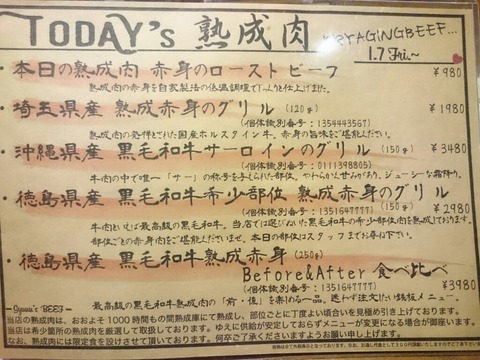 TODAY's 熟成肉 DRYAGINGBEEF...
1.7 Fri.~
・本日の熟成肉 赤身のローストビーフ ¥980
熟成肉の赤身を自家製法の低温調理でしっとり仕上げました。
・埼玉県産 熟成赤身のグリル (120g) ¥1980
(個体識別番号：1354443567)
熟成肉の発祥とされた国産ホルスタイン牛。赤身の旨味をご堪能ください。
・沖縄県産 黒毛和牛サーロインのグリル (150g) ¥3480
(個体識別番号：0111398805)
牛肉の中で唯一「サー」の称号を与えられた部位。やわらかく甘みがあり、ジューシーな霜降り。
・徳島県産 黒毛和牛希少部位 熟成赤身のグリル
(個体識別番号：1351647777) (150g) ¥2980
牛肉といえば最高級の黒毛和牛。当店では選びぬいた黒毛和牛の希少部位肉を熟成しております。
部位ごとの赤身肉をご堪能くださいませ。本日の部位はスタッフまでお尋ね下さい。
・徳島県産 黒毛和牛熟成赤身 (250g)
Before&After 食べ比べ
(個体識別番号：1351647777) ¥3980
最高級の黒毛和牛熟成肉の「前・後」を楽める一品。迷わず注文したい鉄板メニュー。
当店の熟成肉は、おおよそ1000時間もの間熟成庫にて熟成し、部位ごとに丁度よい頃合いを見極め引き上げております。
当店は希少箇所の熟成肉を厳選して取扱しております。ゆえに供給が安定しておらずメニューが変更になる場合が御座います。
なお、熟成肉には限定食を設けさせて頂いております。何卒ご了承くださいますようお願い申し上げます。